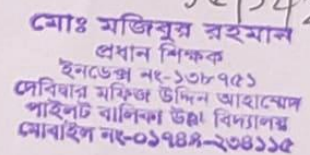 মোঃ মজিবুর রহমান
প্রধান শিক্ষক
ইনডেক্স নং-১৩৮৭৫১
দেবিদ্বার মফিজ উদ্দিন আহাম্মেদ
পাইলট বালিকা উচ্চ বিদ্যালয়
মোবাইল নং-০১৭৪৪-২৩৪১১৫